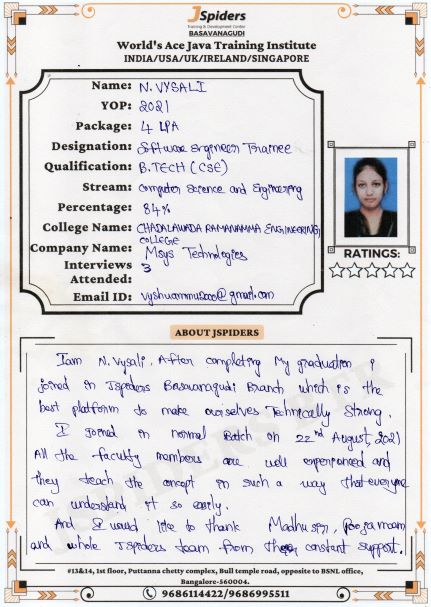 JSpiders
Training & Development Center
BASAVANAGUDI
World's Ace Java Training Institute
INDIA/USA/UK/IRELAND/SINGAPORE
Name: N. VYSALI
YOP: 2021
Package: 4 LPA
Designation: Software engineer Trainee
Qualification: B.TECH (CSE)
Stream: Computer Science and Engineering
Percentage: 84%
College Name: CHADALAWADA RAMANAMMA ENGINEERING
COLLEGE
Company Name: Msys Technologies
Interviews Attended: 3
Email ID: vyshuammu2000@gmail.com
RATINGS:
ABOUT JSPIDERS
I am N. Vysali. After completing My graduation i
joined in Jspiders Basavanagudi Branch which is the
best platform to make ourselves Technically Strong.
I joined in normal Batch on 22nd August, 2021
All the faculty members are well experienced and
they teach the concept in such a way that everyone
can understand it so easily.
And I would like to thank Madhu sir, Pooja mam
and whole Jspiders team from their constant support.
#13&14, 1st floor, Puttanna chetty complex, Bull temple road, opposite to BSNL office,
Bangalore-560004.
9686114422/9686995511